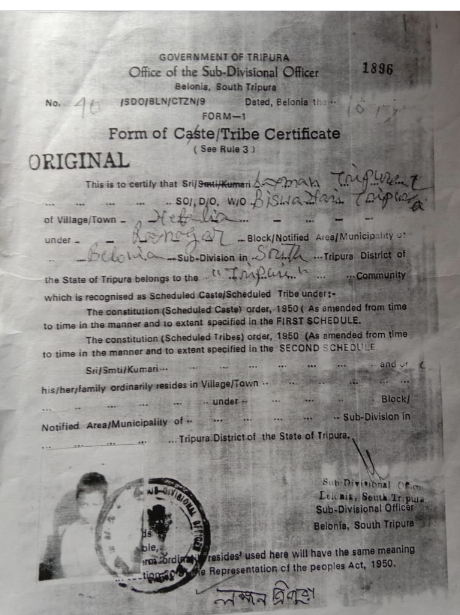 GOVERNMENT OF TRIPURA
Office of the Sub-Divisional Officer
1896
Belonia, South Tripura
No. /SDO/BLN/CTZN/9 Dated, Belonia the
FORM—1
Form of Caste/Tribe Certificate
( See Rule 3 )
ORIGINAL
This is to certify that Sri/Smti/Kumari Laxman Tripura
SO/, D/O, W/O Tripura
of Village/Town
under Block/Notified Area/Municipality of
Belonia Sub-Division in South Tripura District of
the State of Tripura belongs to the "Tripuri" Community
which is recognised as Scheduled Caste/Scheduled Tribe under:-
The constitution (Scheduled Caste) order, 1950 ( As amended from time
to time in the manner and to extent specified in the FIRST SCHEDULE.
The constitution (Scheduled Tribes) order, 1950 (As amended from time
to time in the manner and to extent specified in the SECOND SCHEDULE
Sri/Smti/Kumari and or
his/her/family ordinarily resides in Village/Town
under Block/
Notified Area/Municipality of Sub-Division in
Tripura District of the State of Tripura.
Sub-Divisional Officer
Belonia, South Tripura
Sub-Divisional Officer
Belonia, South Tripura
ordinarily resides' used here will have the same meaning
Representation of the peoples Act, 1950.
লক্ষন ত্রিপুরা